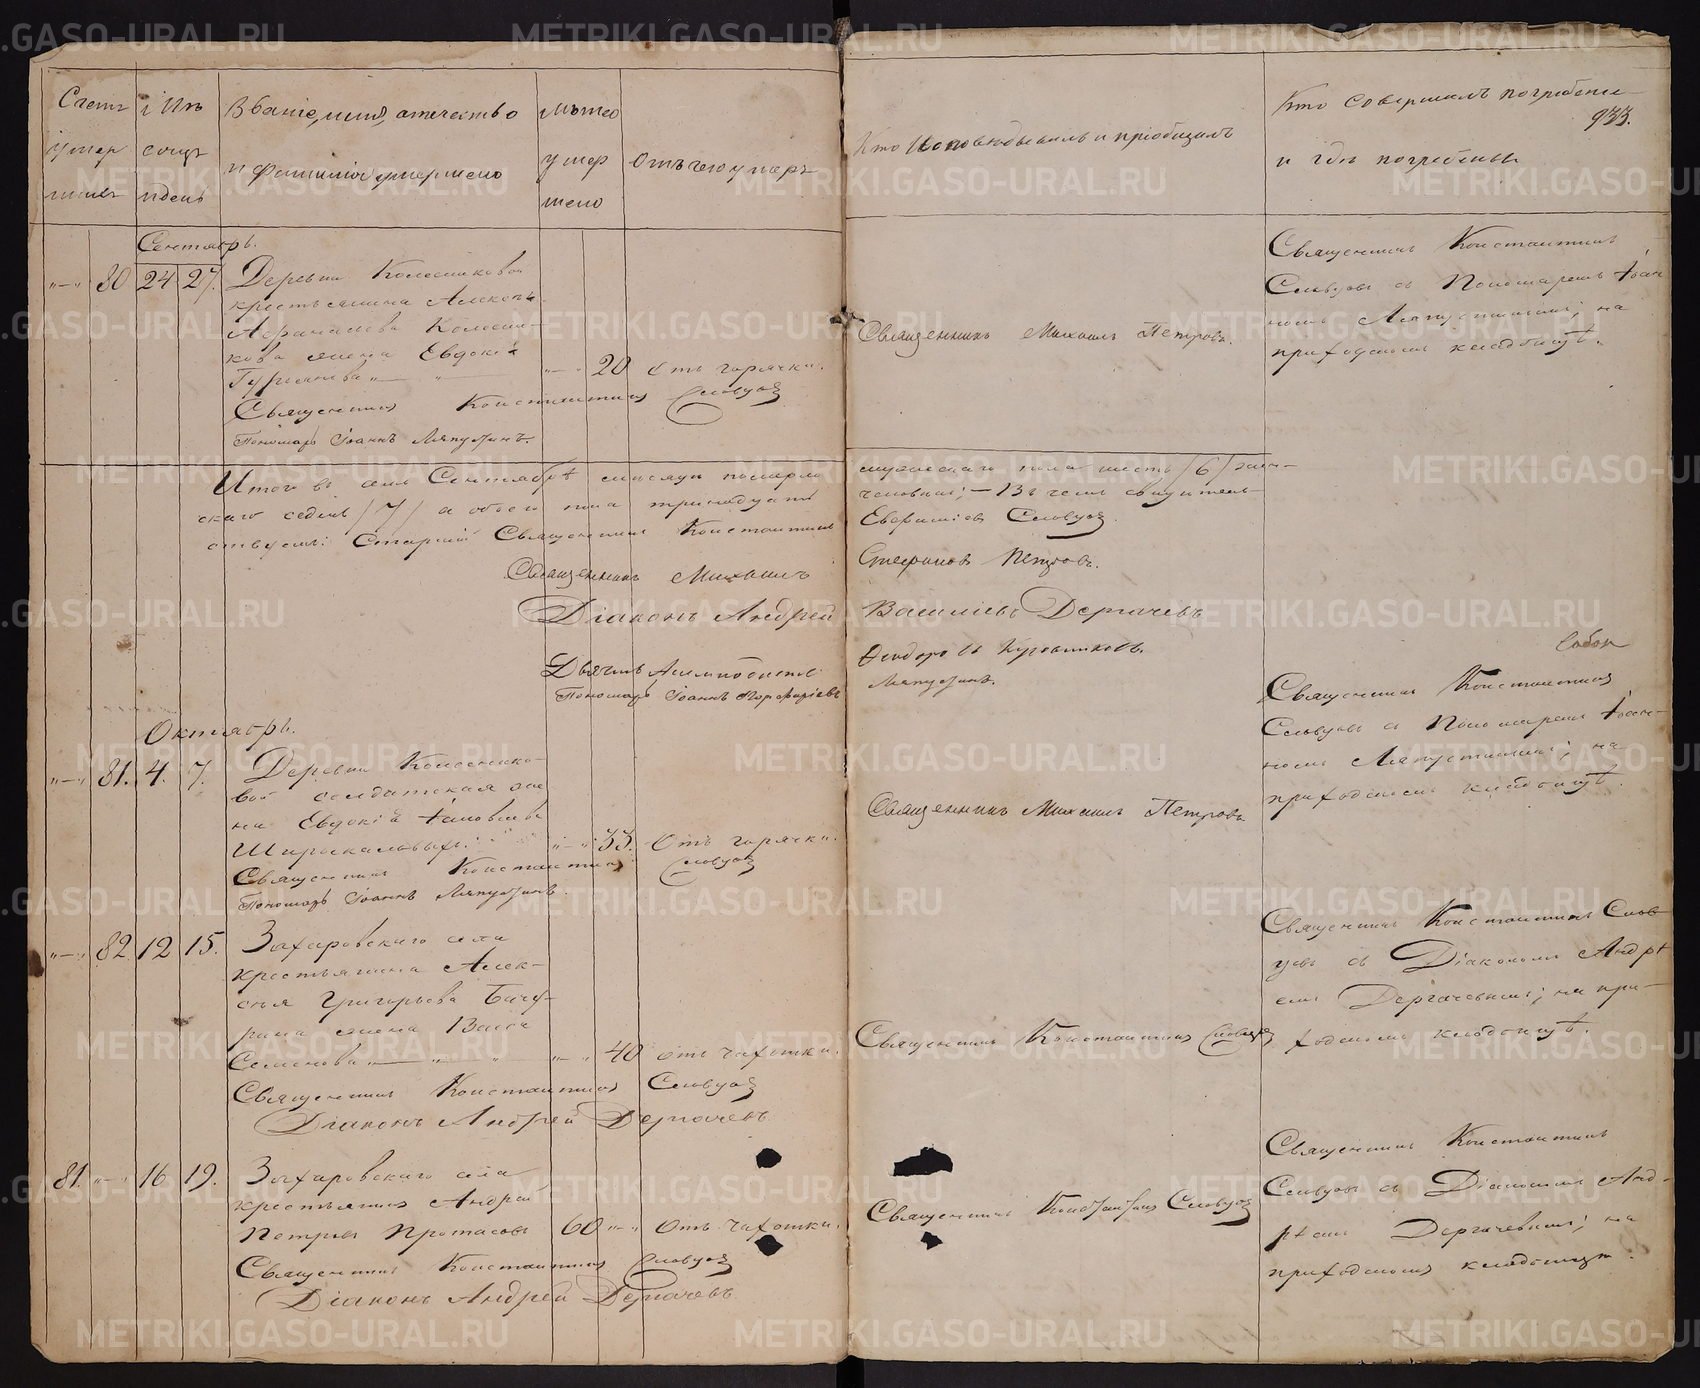 Счетъ
умер
шихъ
Мѣ
сяцъ
и день
Званіе, имя, отчество
и фамилія умершаго
Лѣта
умер
шаго
Отъ чего умеръ
Кто исповѣдывалъ и пріобщалъ
Кто совершалъ погребеніе
и гдѣ погребены
933.
Сентябрь.
80 24 27.
Деревни Колесниковой
крестьянина Алексѣя
Афанасьева Колесни-
кова жена Евдокія
Гурьянова 20 Отъ горячки.
Священникъ Константинъ Словцовъ
Пономарь Іоаннъ Ляпустинъ.
Священникъ Михаилъ Петровъ.
Священникъ Константинъ
Словцовъ съ Пономаремъ Іоан
номъ Ляпустинымъ; на
приходскомъ кладбищѣ.
Итого въ семъ Сентябрѣ мѣсяцѣ померло мужескаго пола шесть /6/ жен-
скаго седмь /7/ а обоего пола тринадцать человѣкъ; – Въ чемъ свидѣтель-
ствуемъ: Старшій Священникъ Константинъ Евфиміевъ Словцовъ.
Священникъ Михаилъ Стефановъ Петровъ.
Діаконъ Андрей Васильевъ Дергачевъ
Дьячекъ Алимпій Ѳеодоровъ
Пономарь Іоаннъ Ляпустинъ.
Октябрь.
81. 4. 7.
Деревни Колеснико-
вой солдатская же
на Евдокія Іаковлева
Широкалова 33. Отъ горячки.
Священникъ Константинъ Словцовъ
Пономарь Іоаннъ Ляпустинъ.
Священникъ Михаилъ Петровъ
Священникъ Константинъ
Словцовъ съ Пономаремъ Іоан-
номъ Ляпустинымъ; на
приходскомъ кладбищѣ.
82. 12 15.
Захаровскаго села
крестьянина Алек-
сѣя Григорьева Бачу-
рина жена Васса
Семенова 40 отъ чахотки.
Священникъ Константинъ Словцовъ
Діаконъ Андрей Дергачевъ
Священникъ Константинъ Словцовъ
Священникъ Константинъ Слов
цовъ съ Діакономъ Андрѣ
емъ Дергачевымъ; на при-
ходскомъ кладбищѣ.
81. 16. 19.
Захаровскаго села
крестьянинъ Андрей
Петровъ Протасовъ 60 Отъ чахотки.
Священникъ Константинъ Словцовъ
Діаконъ Андрей Дергачевъ
Священникъ Константинъ Словцовъ
Священникъ Константинъ
Словцовъ съ Діакономъ Анд-
рѣемъ Дергачевымъ; на
приходскомъ кладбищѣ.
METRIKI.GASO-URAL.RU